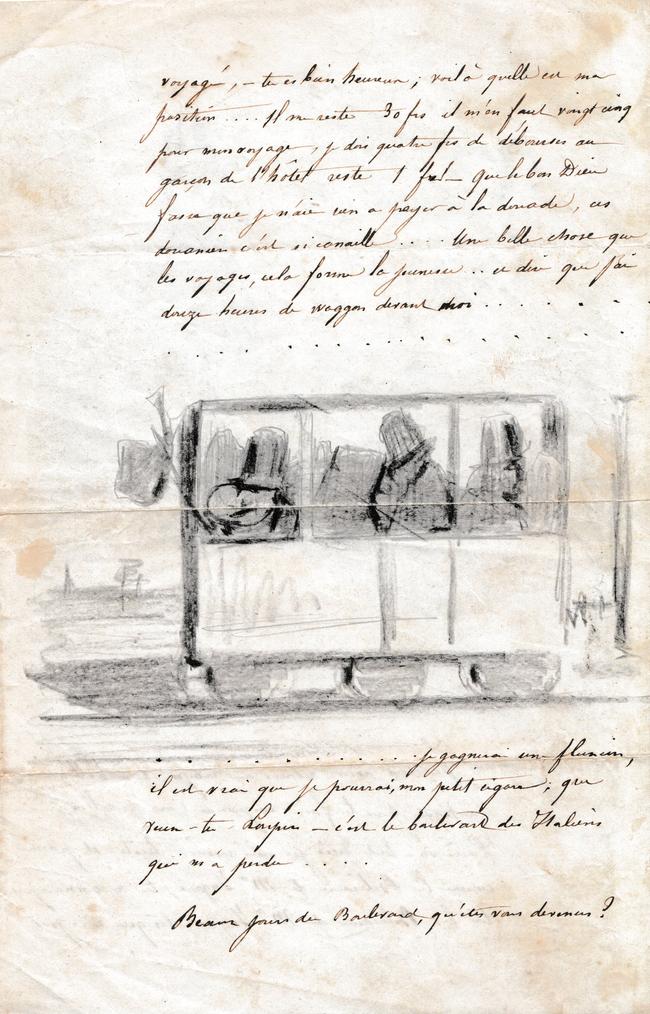 voyagé, – tu es bien heureux ; voilà quelle est ma
position .... Il me reste 30 frs il m'en faut vingt cinq
pour mon voyage, je dois quatre frs de débourses au
garçon de l'hôtel reste 1 fr! – que le bon Dieu
fasse que je n'aie rien a payer à la douade, ces
douaniers c'est si canaille .... Une belle chose que
les voyages, cela forme la jeunesse .. et dire que j'ai
douze heures de waggon devant moi . . . . . .
. . . . . . . . . . . . . . .
. . . . . . . . . . je gagnerai une fluxion,
il est vrai que je pourrai, mon petit cigare ; que
veux-tu – c'est le boulevard des Italiens
qui m'a perdu . . . .
Beaux jours du Boulevard, qu'êtes vous devenus ?